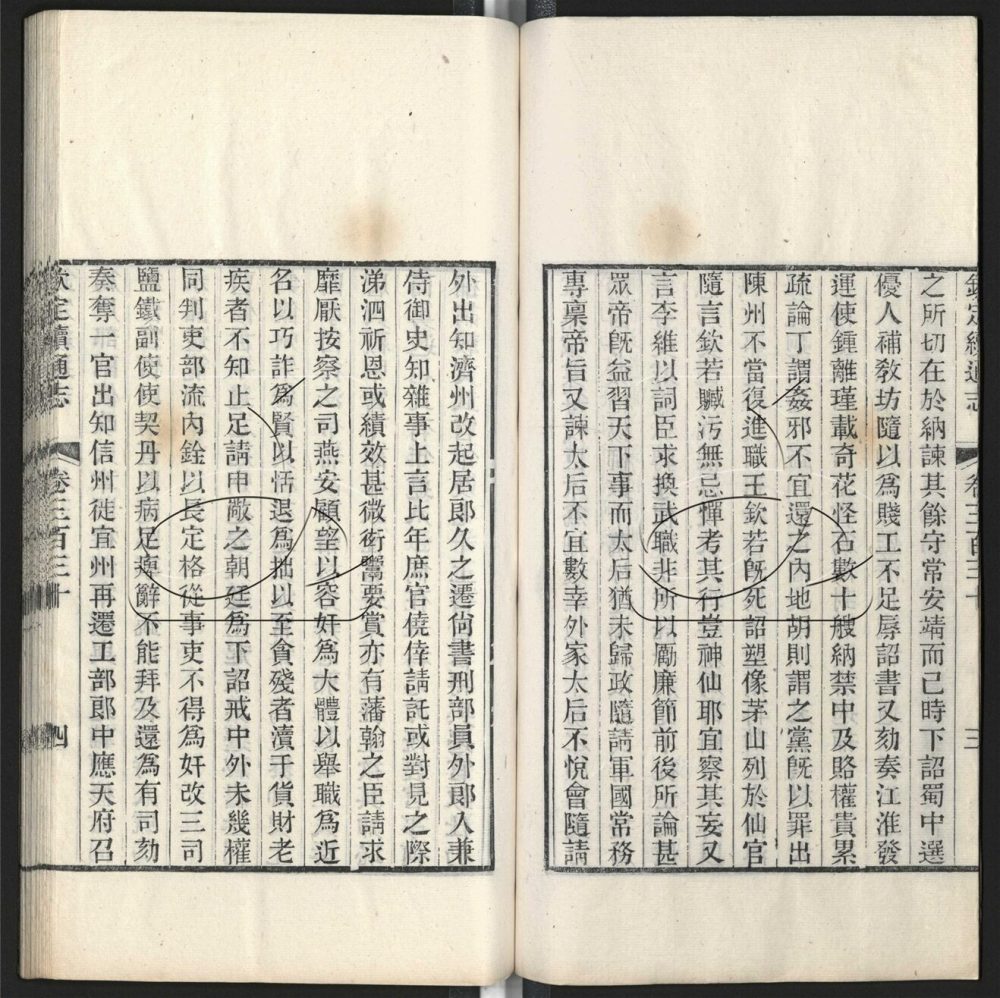 欽定續通志 卷三百三十 三
之所切在於納諫其餘守常安靖而已時下詔蜀中選
優人補敎坊隨以爲賤工不足辱詔書又劾奏江淮發
運使鍾離瑾載奇花怪石數十艘納禁中及賂權貴累
疏論丁謂姦邪不宜還之內地胡則謂之黨旣以罪出
陳州不當復進職王欽若旣死詔塑像茅山列於仙官
隨言欽若贓污無忌憚考其行豈神仙耶宜察其妄又
言李維以詞臣求換武職非所以勵廉節前後所論甚
眾帝旣益習天下事而太后猶未歸政隨請軍國常務
專稟帝旨又諫太后不宜數幸外家太后不悅會隨請
外出知濟州改起居郎久之遷尙書刑部員外郎入兼
侍御史知雜事上言比年庶官僥倖請託或對見之際
涕泗祈恩或績效甚微衒鬻要賞亦有藩翰之臣請求
靡厭按察之司燕安顧望以容奸爲大體以舉職爲近
名以巧詐爲賢以恬退爲拙以至貪殘者瀆于貨財老
疾者不知止足請申儆之朝廷爲下詔戒中外未幾權
同判吏部流內銓以長定格從事吏不得爲奸改三司
鹽鐵副使使契丹以病足痺辭不能拜及還爲有司劾
奏奪一官出知信州徙宜州再遷工部郎中應天府召
欽定續通志 卷三百三十 四